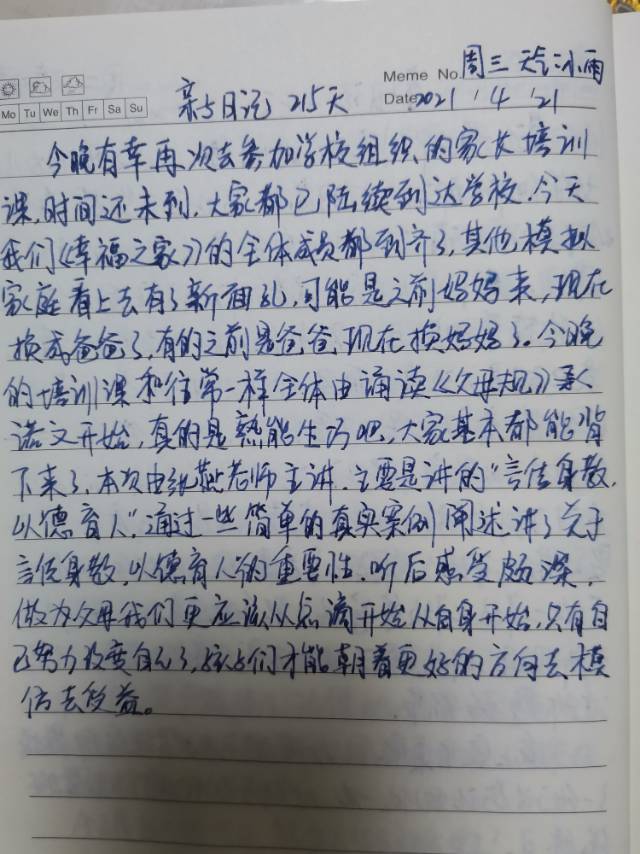 Meme No. 周三 天气:小雨
Mo Tu We Th Fr Sa Su
亲子日记 215天
Date 2021 / 4 / 21
今晚有幸再次去参加学校组织的家长培训
课,时间还未到,大家都已陆续到达学校,今天
我们《幸福之家》的全体成员都到齐了,其他模拟
家庭看上去有了新面孔,可能是之前妈妈来,现在
换成爸爸了,有的之前是爸爸,现在换妈妈了。今晚
的培训课和往常一样全体由诵读《父母规》承
诺文开始,真的是熟能生巧吧,大家基本都能背
下来了,本次由张燕老师主讲,主要是讲的“言传身教,
以德育人”,通过一些简单的真实案例阐述讲了关于
言传身教,以德育人的重要性,听后感受颇深,
做为父母我们更应该从点滴开始从自身开始,只有自
己努力改变自己了,孩子们才能朝着更好的方向去模
仿去受益。